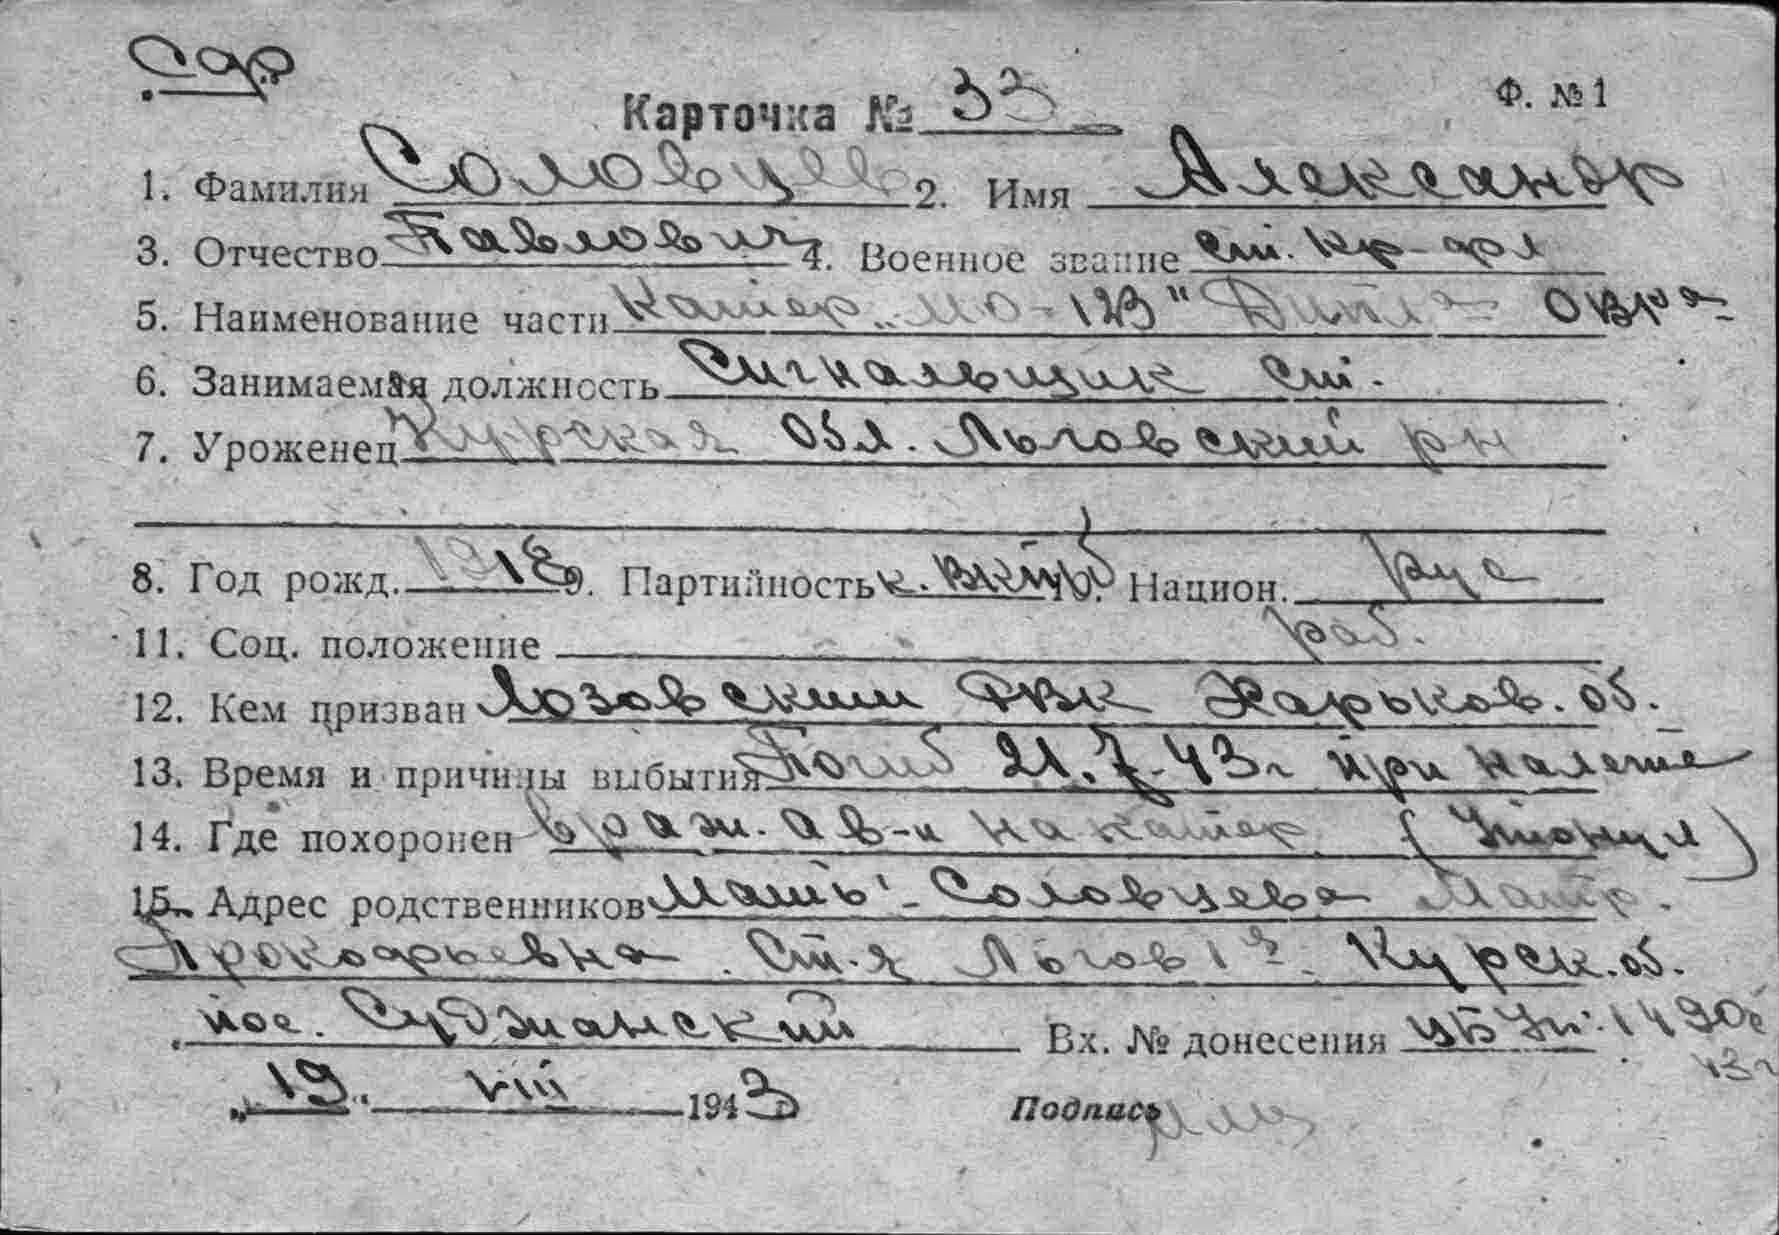 Сдр
Ф. №1
Карточка № 33
1. Фамилия Соловцев 2. Имя Александр
3. Отчество Павлович 4. Военное звание ст. кр-фл
5. Наименование части Катер „МО-123" ОВРа
6. Занимаемая должность Сигнальщик ст.
7. Уроженец Курская обл. Льговский рн
8. Год рожд. 1918 9. Партийность к. ВКПб 10. Национ. рус
11. Соц. положение раб.
12. Кем призван Лозовский РВК Харьков. об.
13. Время и причины выбытия Погиб 21.7-43г при налете
14. Где похоронен враж. ав-и на катер (Утонул)
15. Адрес родственников Мать - Соловцева Матр.
Прокофьевна. Ст.я Льгов 1я. Курск. об.
пос. Суджанский Вх. № донесения 1490с
43г
„19" VIII 1943 Подпись